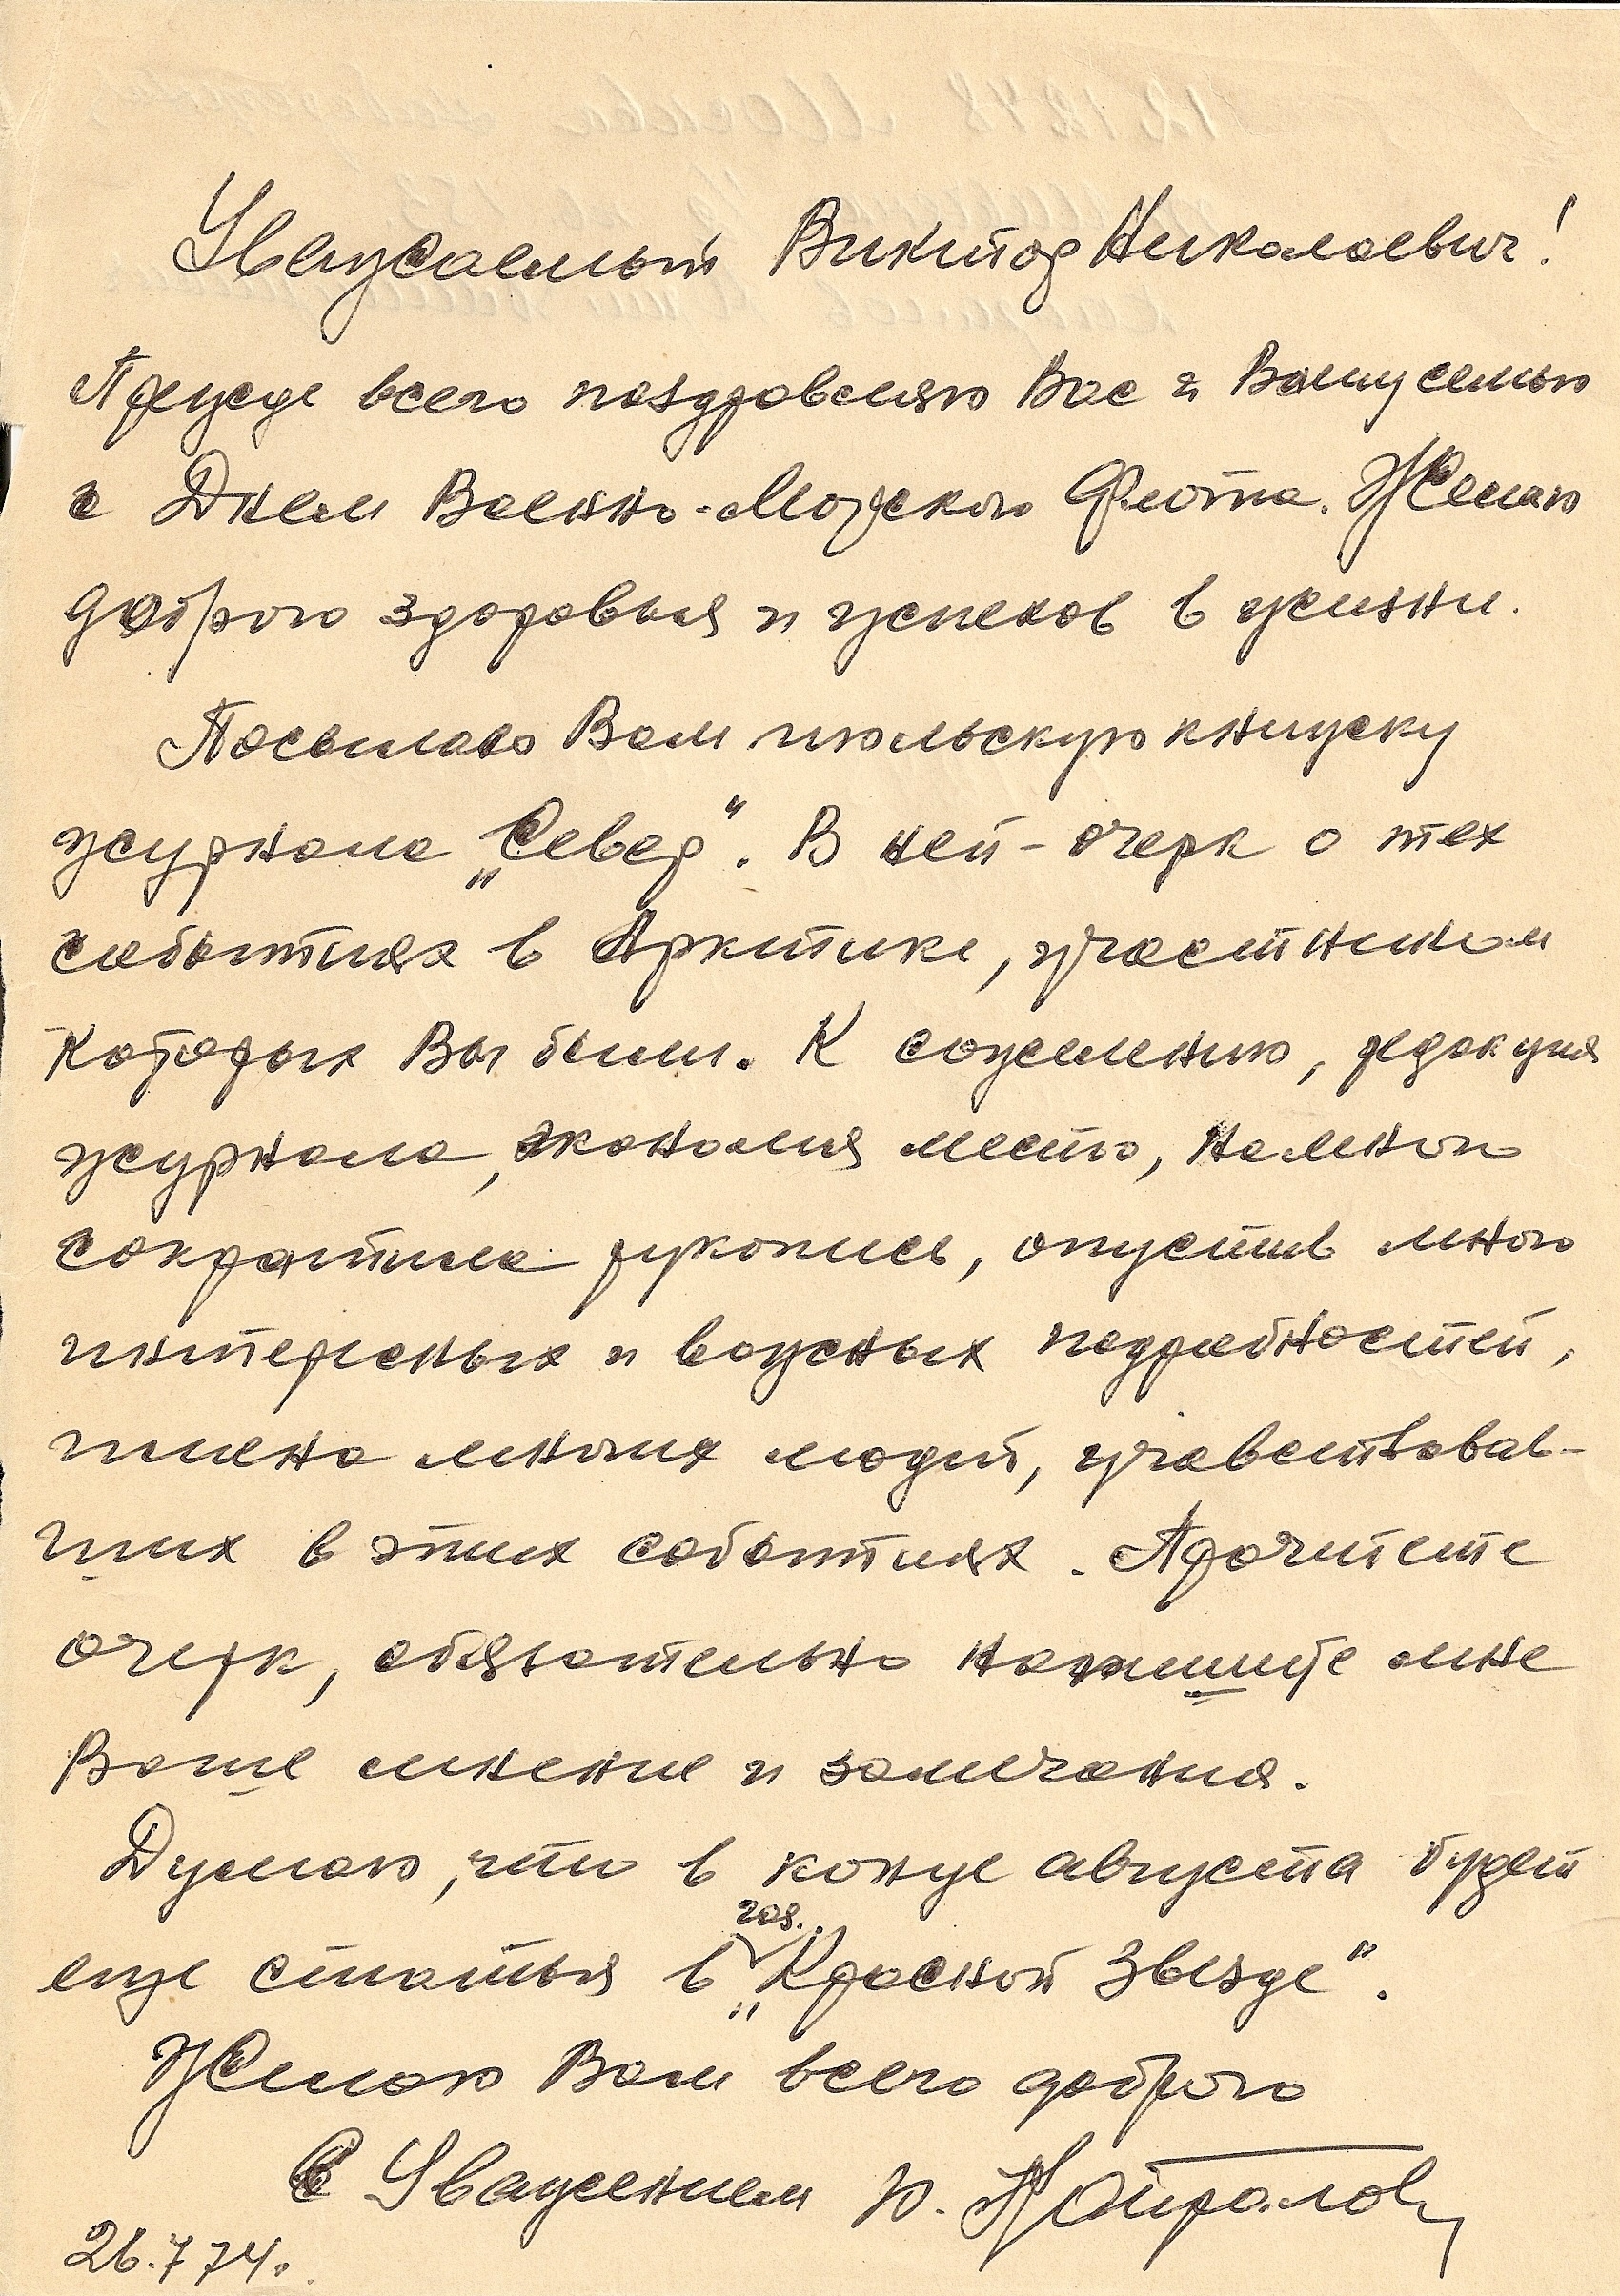 Уважаемый Виктор Николаевич!
Прежде всего поздравляю Вас и Вашу семью
с Днем Военно-Морского Флота. Желаю
доброго здоровья и успехов в жизни.
Посылаю Вам июльскую книжку
журнала „Север“. В ней - очерк о тех
событиях в Арктике, участником
которых Вы были. К сожалению, редакция
журнала, экономя место, намного
сократила рукопись, опустив много
интересных и важных подробностей,
имена многих людей, учавствовав-
ших в этих событиях. Прочтете
очерк, обязательно напишите мне
Ваше мнение и замечания.
Думаю, что в конце августа будет
газ.
еще статья в „Красной Звезде“.
Желаю Вам всего доброго
С Уважением Ю.
26.7 74.